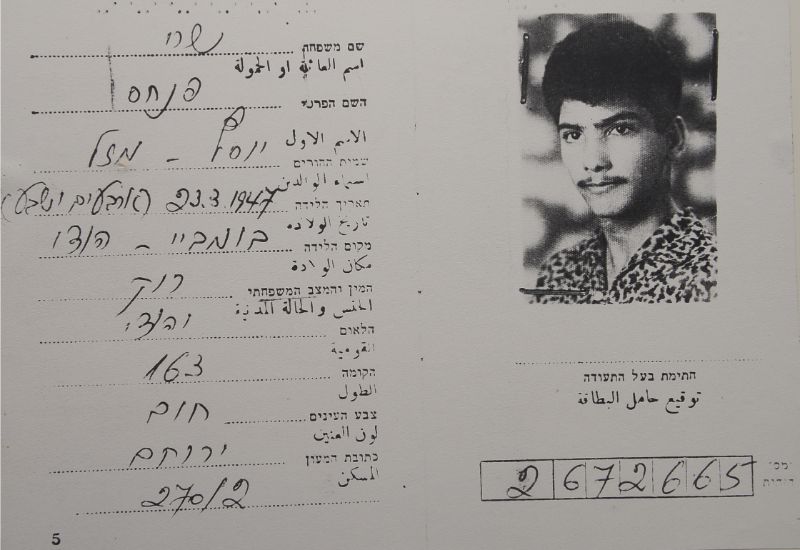 שם משפחת נשרי
اسم العائلة او الحمولة
השם הפרטי פנחס
الاسم الاول
שמות ההורים יוסף - מזל
اسماء الوالدين
תאריך הלידה 23.3.1947 (ארבעים ושבע)
تاريخ الولادة
מקום הלידה בומביי - הודו
مكان الولادة
המין והמצב המשפחתי רווק
الجنس والحالة المدنية
הלאום יהודי
القومية
הקומה 163
الطول
צבע העינים חום
لون العينين
כתובת המעון ירוחם
المسكن 270/2
5
חתימת בעל התעודה
توقيع حامل البطاقة
2 672665